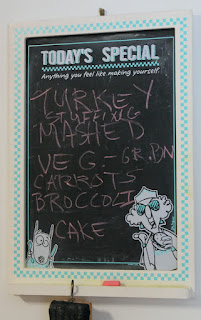 TODAY'S SPECIAL
Anything you feel like making yourself.
TURKEY
STUFFING
MASHED
VEG - GR. BN
CARROTS
BROCCOLI
CAKE